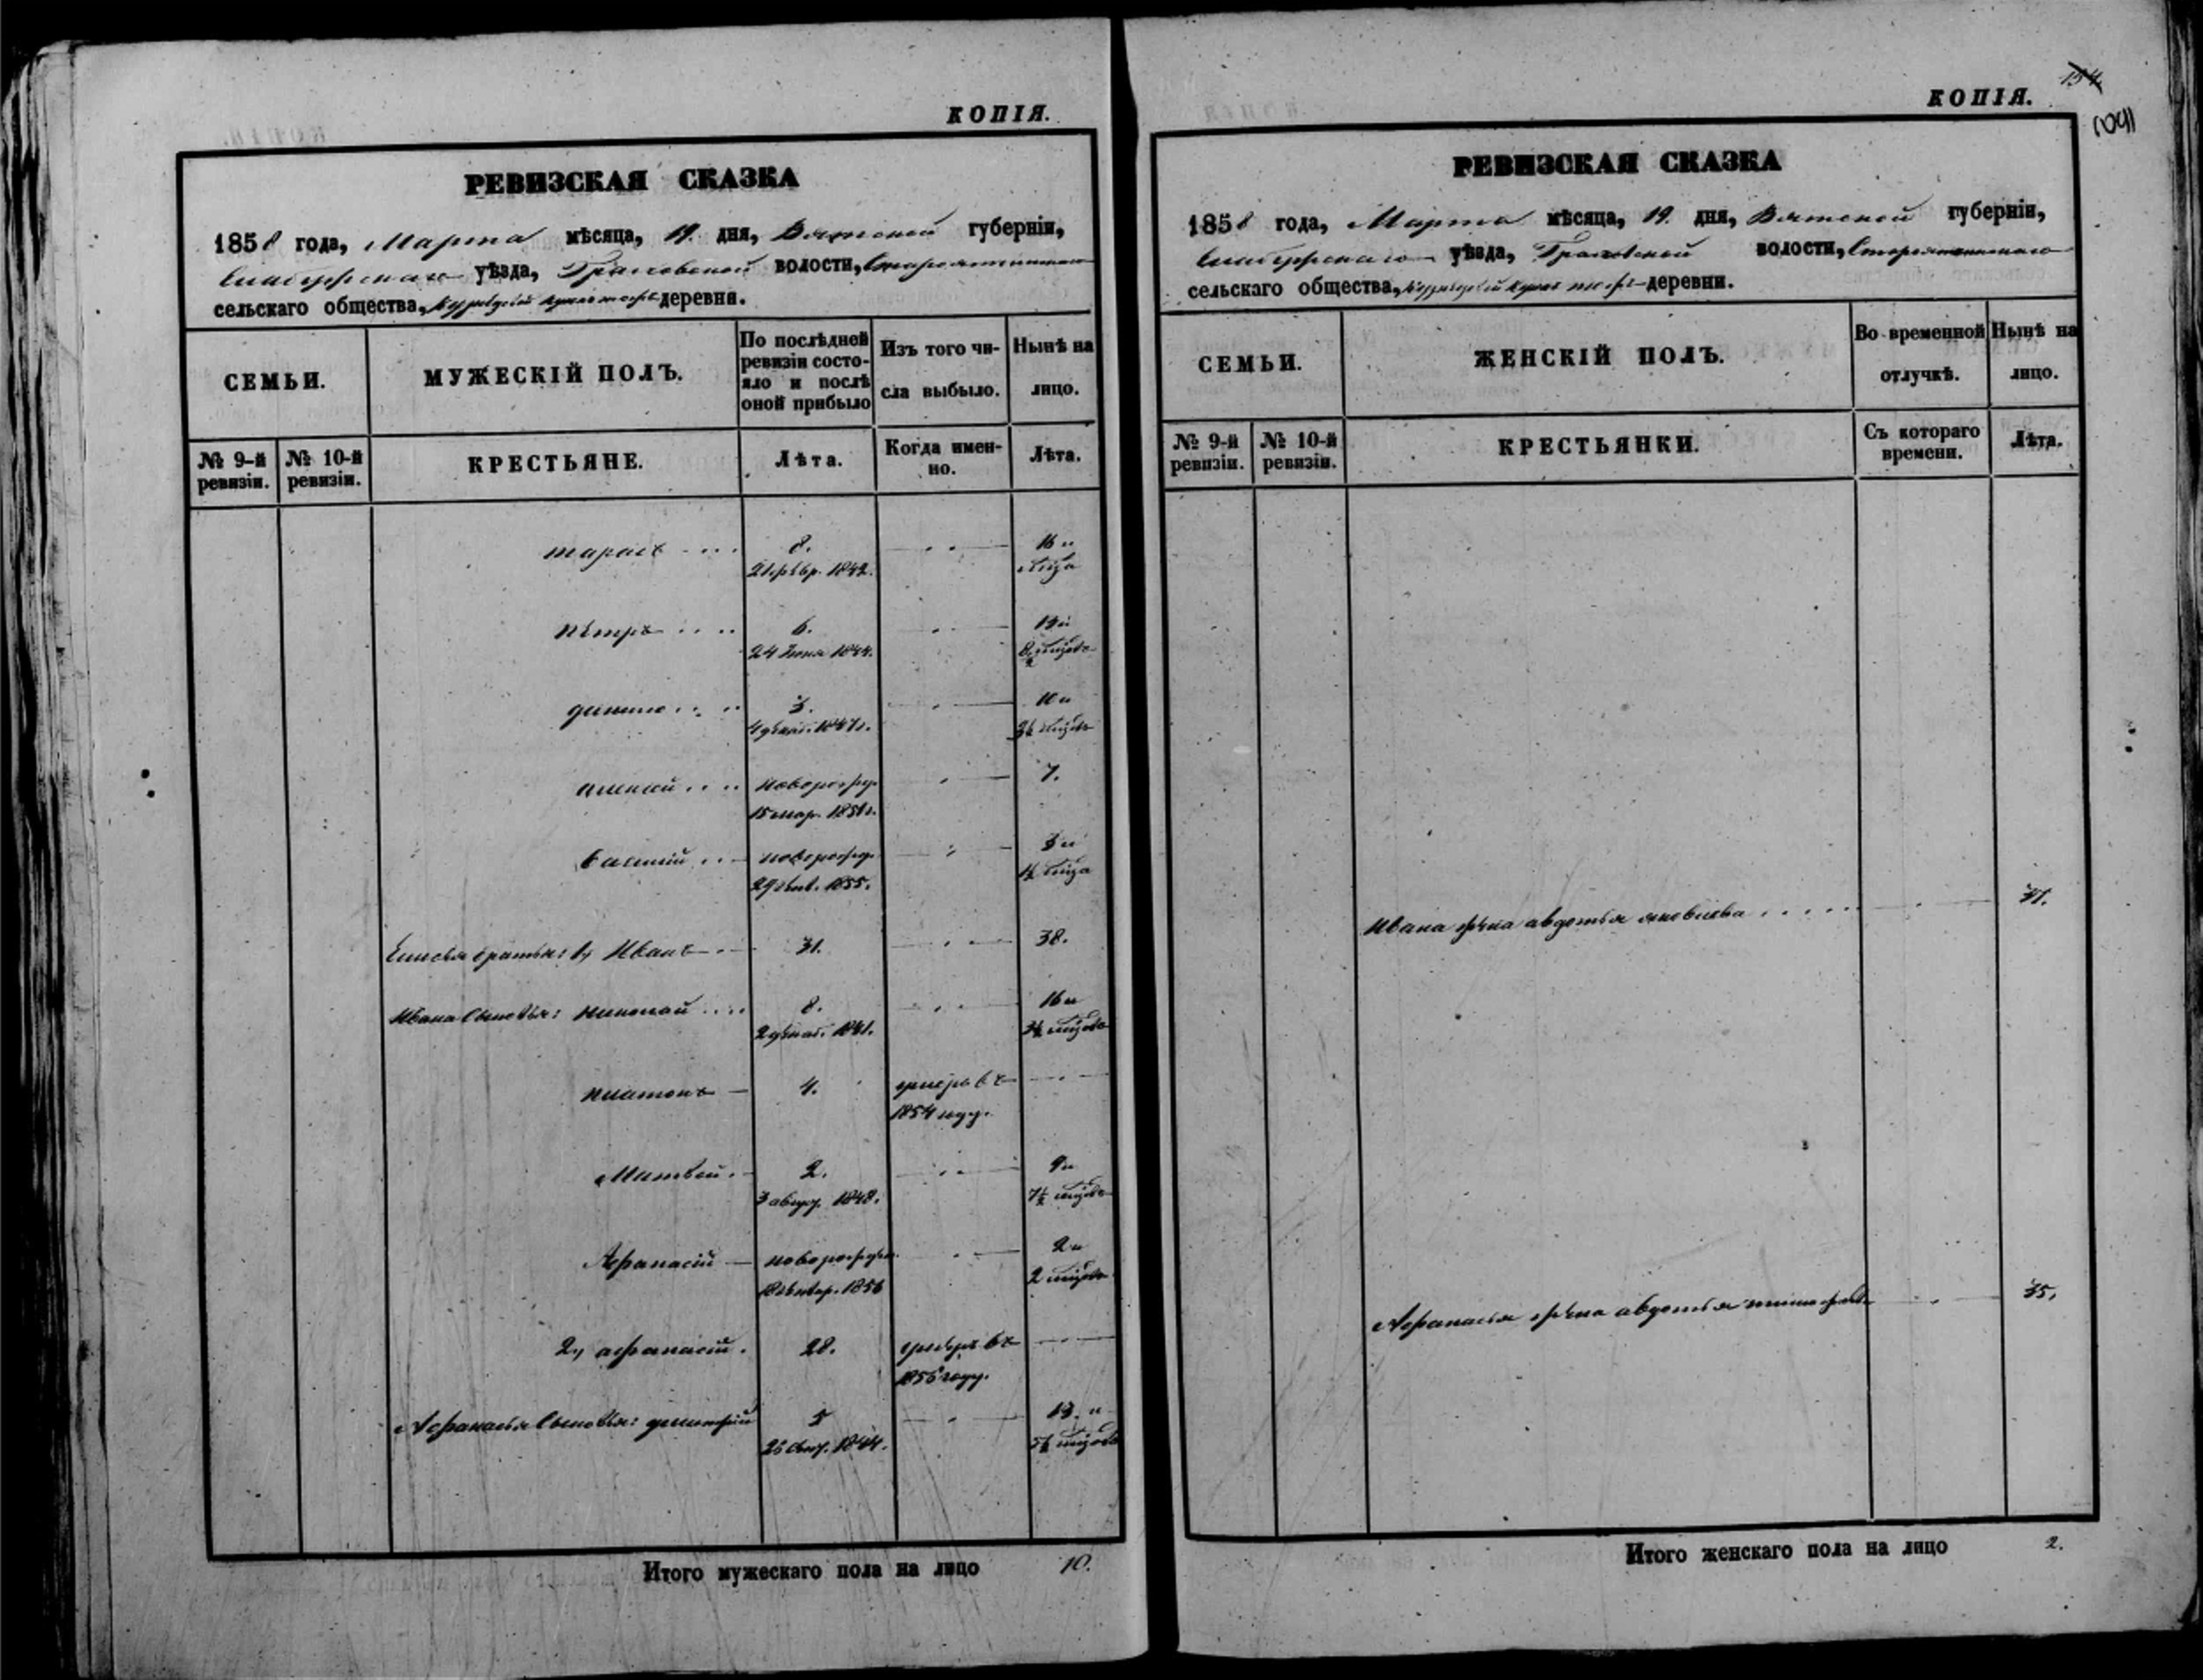 КОПІЯ.
РЕВИЗСКАЯ СКАЗКА
1858 года, Марта мѣсяца, 19. дня, Вятской губерніи,
Елабужскаго уѣзда, Граховской волости,
сельскаго общества, деревни.
СЕМЬИ.
МУЖЕСКІЙ ПОЛЪ.
По послѣдней ревизіи состо-
яло и послѣ
оной прибыло
Изъ того чи-
сла выбыло.
Нынѣ на
лицо.
№ 9-й
ревизіи.
№ 10-й
ревизіи.
КРЕСТЬЯНЕ.
Лѣта.
Когда имен-
но.
Лѣта.
тарасъ 8. 16 и
21 февр. 1842.
петръ 6. 13 и
24 Іюня 1844. 8½
3. 10 и
4 1847 г. 3½
алексѣй новорожд. 7.
15 мар. 1851 г.
василій новорожд. 3 и
1855. 1½
братья: 1, Иванъ 31. 38.
Ивана сыновья: николай 8. 16 и
1841. 3½
платонъ 4. умеръ въ
1854 году.
Матвей 2. 9 и
3 авгус. 1848. 7½
Афанасій новорожден. 2 и
18 1856 2
2, афанасій. 28. умеръ въ
1856 году.
Афанасья сыновья: дмитрій 5 13. и
26 1844. 5½
Итого мужескаго пола на лицо 10.
154
КОПІЯ.
РЕВИЗСКАЯ СКАЗКА
1858 года, Марта мѣсяца, 19. дня, Вятской губерніи,
Елабужскаго уѣзда, Граховской волости,
сельскаго общества, деревни.
СЕМЬИ.
ЖЕНСКІЙ ПОЛЪ.
Во временной
отлучкѣ.
Нынѣ на
лицо.
№ 9-й
ревизіи.
№ 10-й
ревизіи.
КРЕСТЬЯНКИ.
Съ котораго
времени.
Лѣта.
Ивана жена авдотья яковлева
Афанасья жена авдотья 35.
Итого женскаго пола на лицо 2.